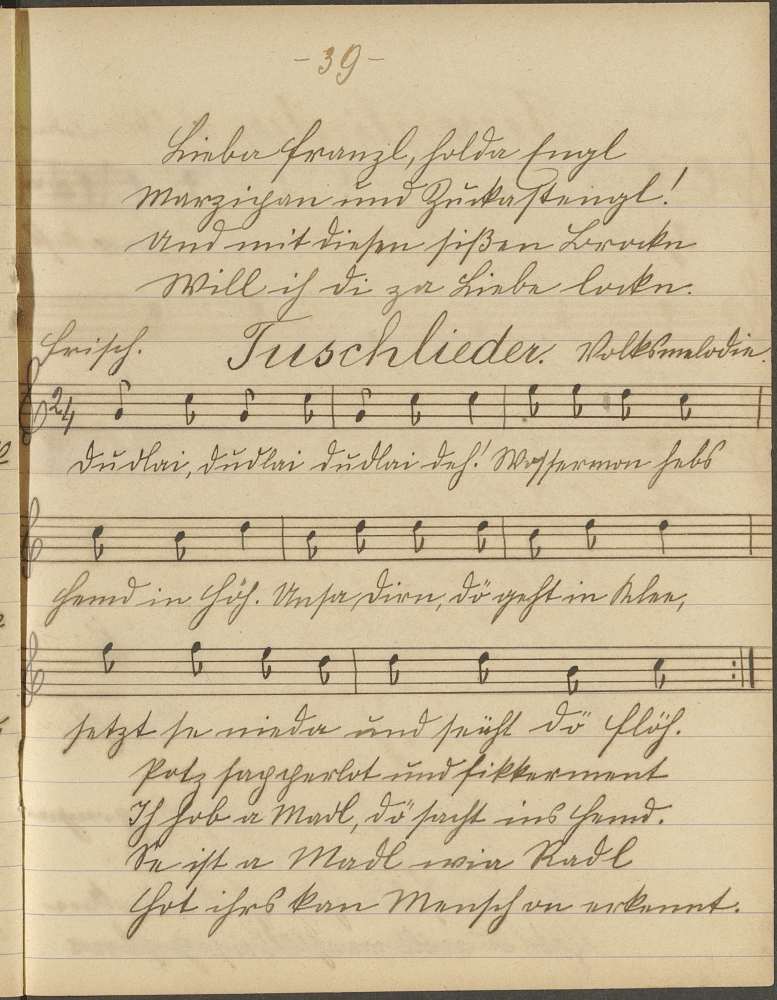 - 39 -
Lieba Franzl, holda Engl
Marzipan und Zuckastengl!
Und mit diesen sißen Brockn
Will ich di za Liebe lockn.
Frisch. Tuschlieder. Volksmelodie.
2/4
Dudlai, dudlai dudlai deh! Wossermon hebs
Hemd in Höh. Unsa Dirn, dö geht in Klee,
setzt se nieda und seicht dö Flöh.
Potz sapperlot und sikkerment
Ich hob a Madl, dö sacht ins Hemd.
Se ist a Madl wia Radl
Hot ihrs kan Mensch on erkennt.